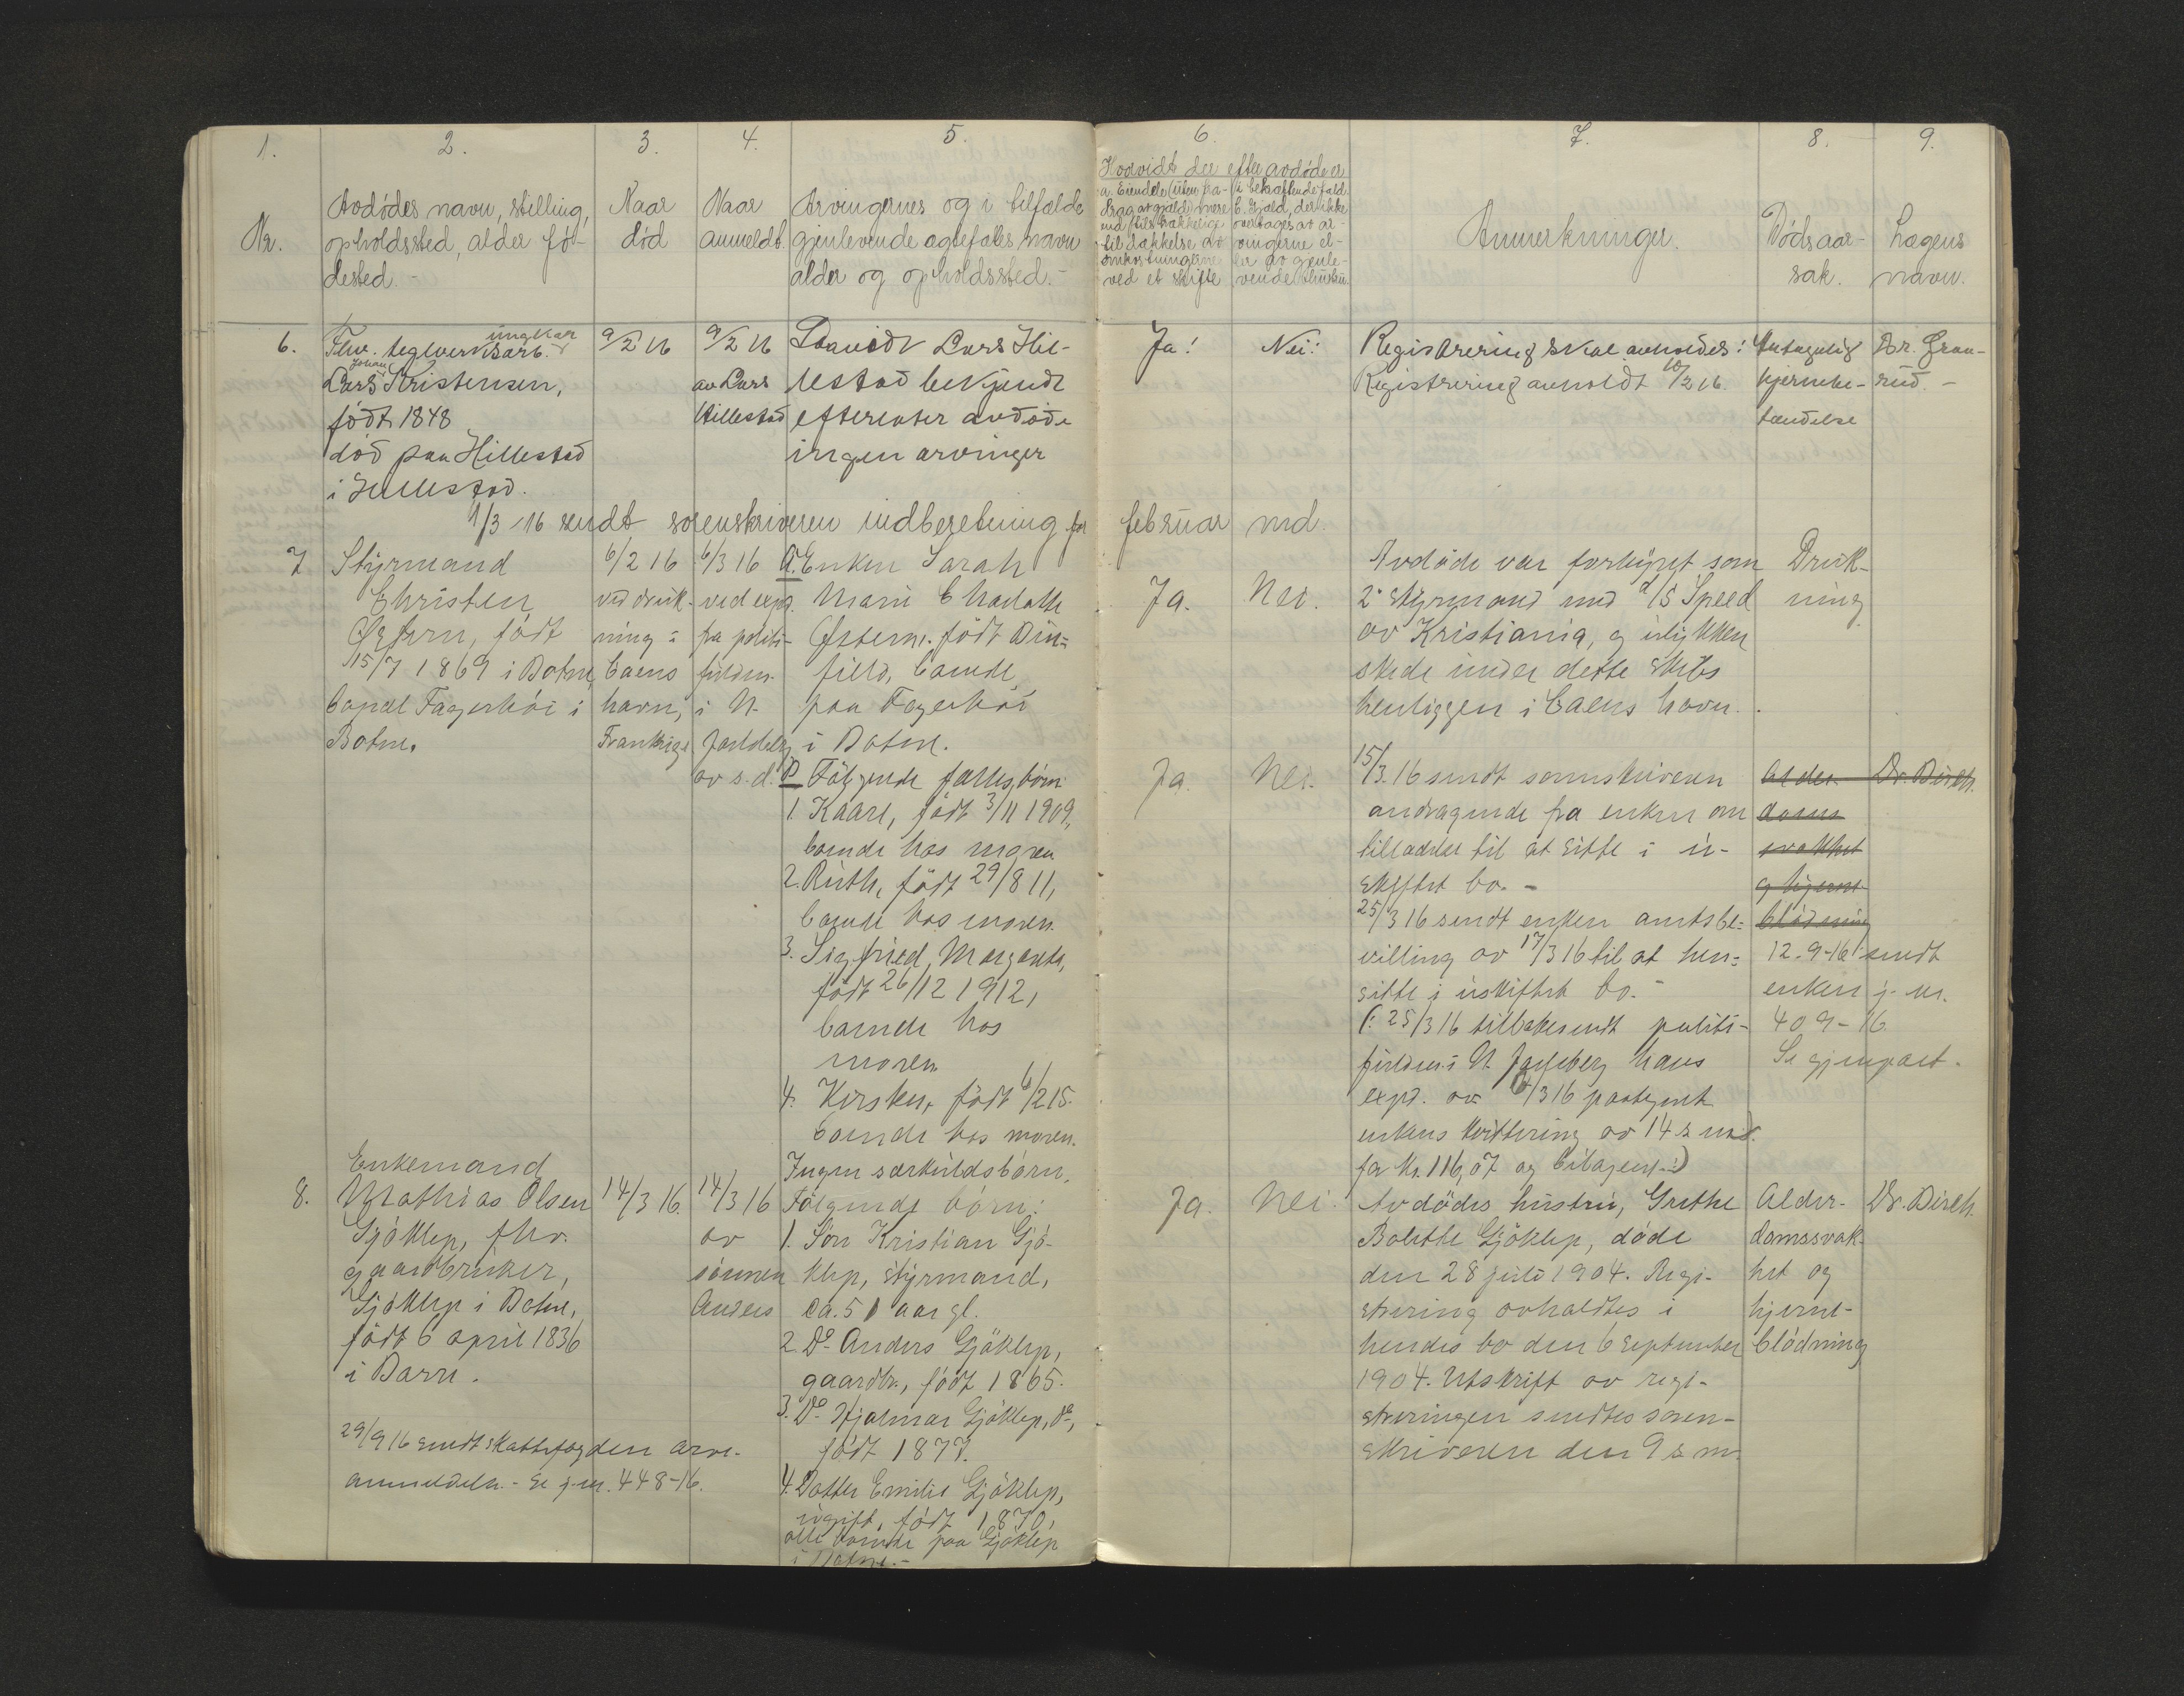 1.
2.
3.
4.
5.
6.
7.
8.
9.
Nr.
Avdødes navn, stilling,
opholdssted, alder fø-
dested.-
Naar
død
Naar
anmeldt.
Arvingernes og i tilfælde
gjenlevende ægtefæles navn
alder og opholdssted.-
Hvorvidt der efter avdøde er
a. Eiendele (uten fra-
drag av gjæld) mere
end tilstrækkelige
til dækkelse av
omkostningerne
ved et skifte
i bekræftende fald
b. Gjæld, der ikke
overtages av ar-
vingerne el-
ler av gjenle-
vende
Anmerkninger.
Dødsaar-
sak.
Lægens
navn.
6.
Fhv. teglverksarb. ungkar
Lars Johan Kristensen,
født 1848
død paa Hillestad
i Hillestad.
9/2 16
9/2 16
av Lars
Hillestad
Lars Hil-
lestad bekjendt
efterlater avdøde
ingen arvinger
Ja!
Nei!
Registrering skal avholdes!
Registrering avholdt 10/2 16.
Antagelig
hjernebe-
tændelse
Dr. Gran-
rud.-
1/3-16 sendt sorenskriveren indberetning for februar md.
7
Styrmand
Christen
født
15/7 1869 i Botne,
bopæl Fagerhøi i
Botne.
6/2 16
ved druk-
ning i
Caens
havn,
Frankrige
6/3 16
ved expd.
fra politi-
fuldm.
i N.
Jarlsberg
av s.d.
A. Enken Sarah
Marie Charlotte
født Din-
field, boende
paa Fagerhøi
i Botne.
B Følgende fællesbørn
1. Kaare, født 3/11 1909,
boende hos moren
2. Ruth, født 29/8 11,
boende hos moren.
3. Sigfried Margrethe,
født 26/12 1912,
boende hos
moren
4. Kirsten, født 6/2 15.
boende hos moren.
Ingen særkuldsbørn.
Ja.
Nei.
Ja.
Nei.
Avdøde var forhyret som
2' styrmand med d/s Speed
av Kristiania, og ulykken
skede under dette skibs
henliggen i Caens havn.
15/3. 16 sendt sorenskriveren
andragende fra enken om
tilladelse til at sitte i u-
skiftet bo.-
25/3 16 sendt enken amtsbe-
villing av 17/3 16 til at hen-
sitte i uskiftet bo.-
(: 25/3 16 tilbakesendt politi-
fuldm. i N. Jarlsberg hans
expd. av 6/3 16 paategnet
enkens kvittering av 14 s. md.
for kr. 116,07 og bilagene:)
Druk-
ning
Alder-
doms
svakhet
og hjerne
blødning
Dr. Birch.
12-9-16 sendt
enken j. nr.
409-16
Se gjenpart.
8.
Enkemand
Mathias Olsen
Gjøklep, fhv.
gaardbruker,
Gjøklep i Botne,
født 6 april 1836
i Borre.
29/9 16 sendt skattefogden arve-
anmeldelse.- Se j-nr. 448-16.
14/3 16.
14/3 16
av
sønnen
Anders
Følgende børn:
1. Søn Kristian Gjø-
klep, styrmand,
ca. 51 aar gl.
2. Do Anders Gjøklep,
gaardbr., født 1865.
3. Do Hjalmar Gjøklep, do,
født 1877.
4. Datter Emilie Gjøklep,
ugift, født 1870,
alle boende paa Gjøklep
i Botne.-
Ja.
Nei.
Avdødes hustru, Grethe
Bolette Gjøklep, døde
den 28 juli 1904. Regi-
strering avholdtes i
hendes bo den 6 september
1904. Utskrift av regi-
streringen sendtes soren-
skriveren den 9 s. m.
Alder-
domssvak-
het og
hjerne-
blødning
Dr. Birch.